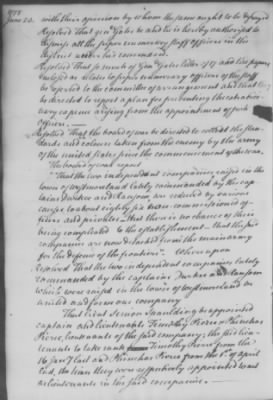 1778
June 23.
with their opinion by whom the same ought to be defrayed
Resolved That genl Gates be and he is hereby authorized to
dismiss all the supernumerary staff officers in the
under his command.
Resolved That so much of Genl Gates letter of 17 and the papers
enclosed as relates to supernumerary officers of the staff
be referred to the committee of arrangement and that they
be directed to report a plan for preventing the unnecessary
expence arising from the appointment of such
officers.
Resolved That the board of war be directed to collect the standards
and colours taken from the enemy by the army
of the united states since the commencement of the war.
The board of war report
"That the two independent companies raised in the
town of westmoreland lately commanded by the captains
Durkee and Ransom are reduced by various
causes to about eighty six non commissioned officers
and privates, that there is no chance of their
being completed to the establishment, that the said
companies are now detached from the main army
for the defence of the frontiers". Whereupon
Resolved That the two independent companies lately
commanded by the captains Durkee and Ransom
which were raised in the town of westmoreland be
united and form one company
That lieut Simon Spaulding be appointed
captain and lieutenants Timothy Pierce & Phinehas
Pierce, lieutenants of the said company; the said lieutenants
to take rank Timothy Pierce from the
16 Jany last and Phinehas Pierce from the 6th of april
last, the time they were respectively appointed
as lieutenants in the said companies.